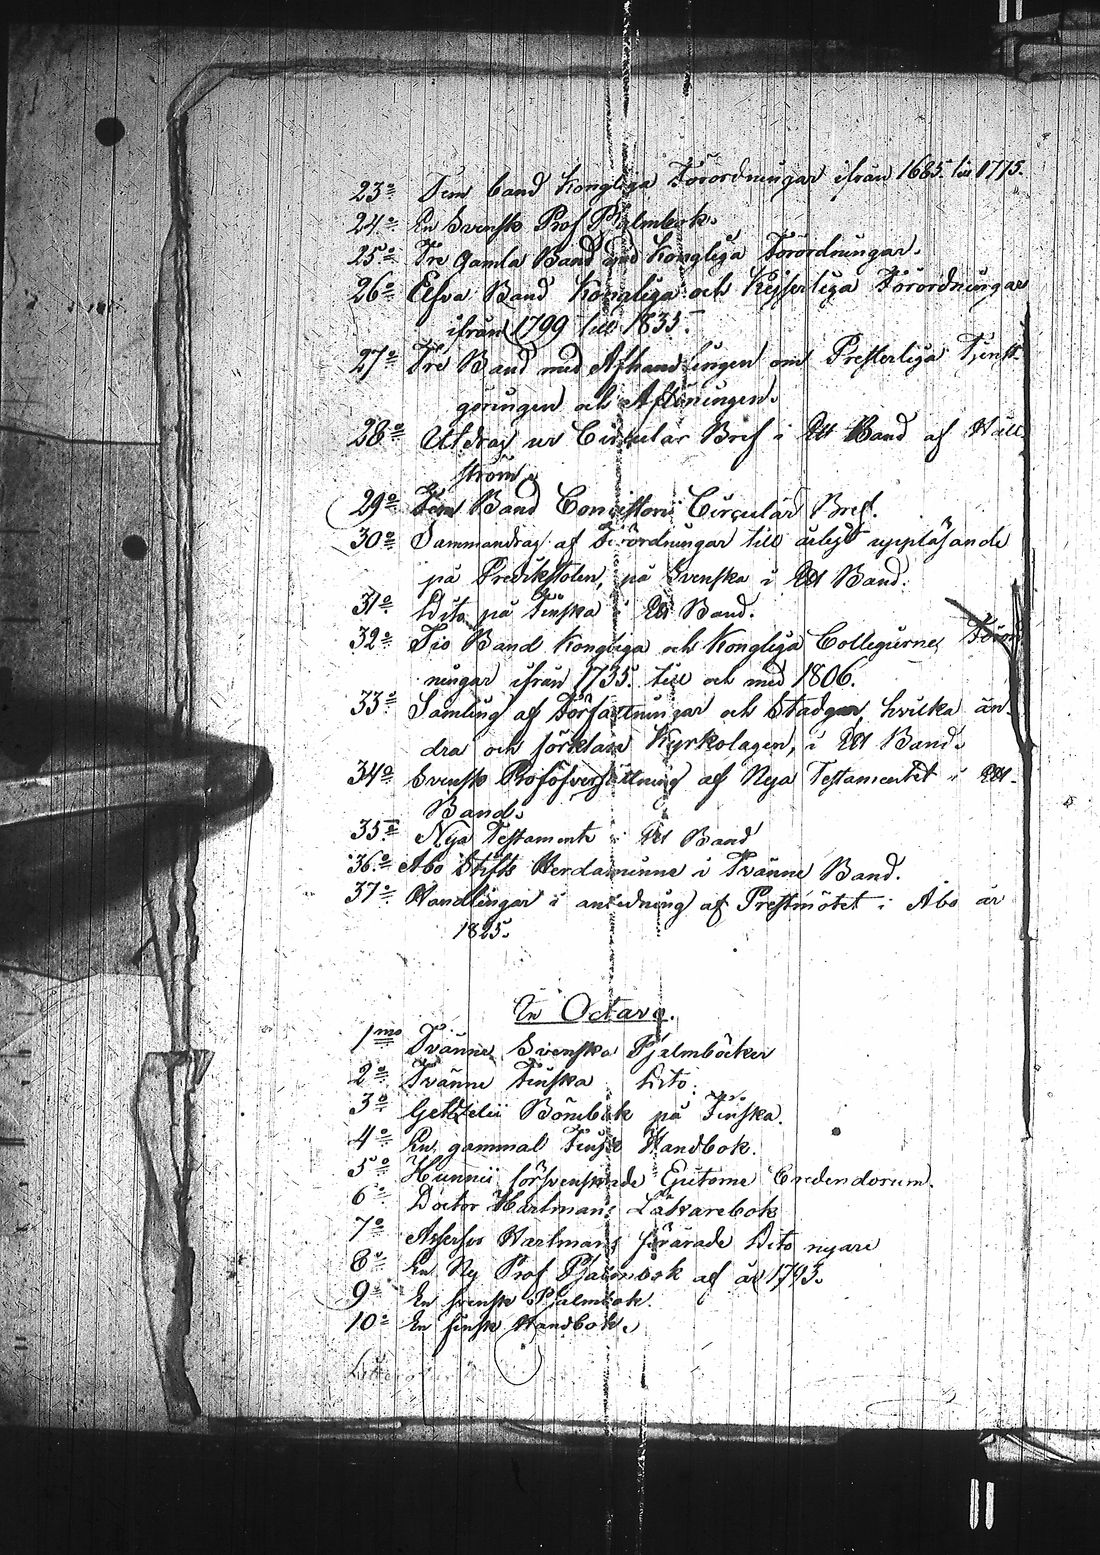 23:o Fem band Kongliga Förordningar ifrån 1685. till 1775.
24:o En Svensk Prof Psalmbok.
25:o Tre Gamla Band med Kongliga Förordningar.
26:o Elfva Band Kongliga och Kejserliga Förordningar
ifrån 1799 till 1835.
27:o Tre Band med Afhandlingen om Presterliga Tjenst-
göringen och Aflöningen.
28:o Utdrag ur Circulär Bref i Ett Band af Hall-
ström.
29:o Fem Band Consistorii Circulär Bref.
30:o Sammandrag af Förordningar till årligt uppläsande
på Predikstolen, på Svenska i Ett Band.
31:o Dito på Finska i Ett Band.
32:o Tio Band Kongliga och Kongliga Collegiernes Förord
ningar ifrån 1735. till och med 1806.
33:o Samling af Författningar och Stadgar, hvilka än-
dra och förklara Kyrkolagen, i Ett Band.
34:o Svensk Proföfversättning af Nya Testamentet i Ett
Band.
35:o Nya Testamente i Ett Band
36:o Åbo Stifts Herdaminne i Tvänne Band.
37:o Handlingar i anledning af Prestmötet i Åbo år
1825.
In Octavo.
1:mo Tvänne Svenska Psalmböcker
2:o Tvänne Finska Dito.
3:o Getzelii Bönebok på Finska.
4:o En gammal Finsk Handbok.
5:o Hunnii försvenskade Epitome Credendorum.
6:o Doctor Hartmans Läkarebok
7:o Assessor Hartmans förärade Dito nyare
8:o En Ny Prof Psalmbok af år 1793.
9:o En svensk Psalmbok.
10:o En finsk Handbok.